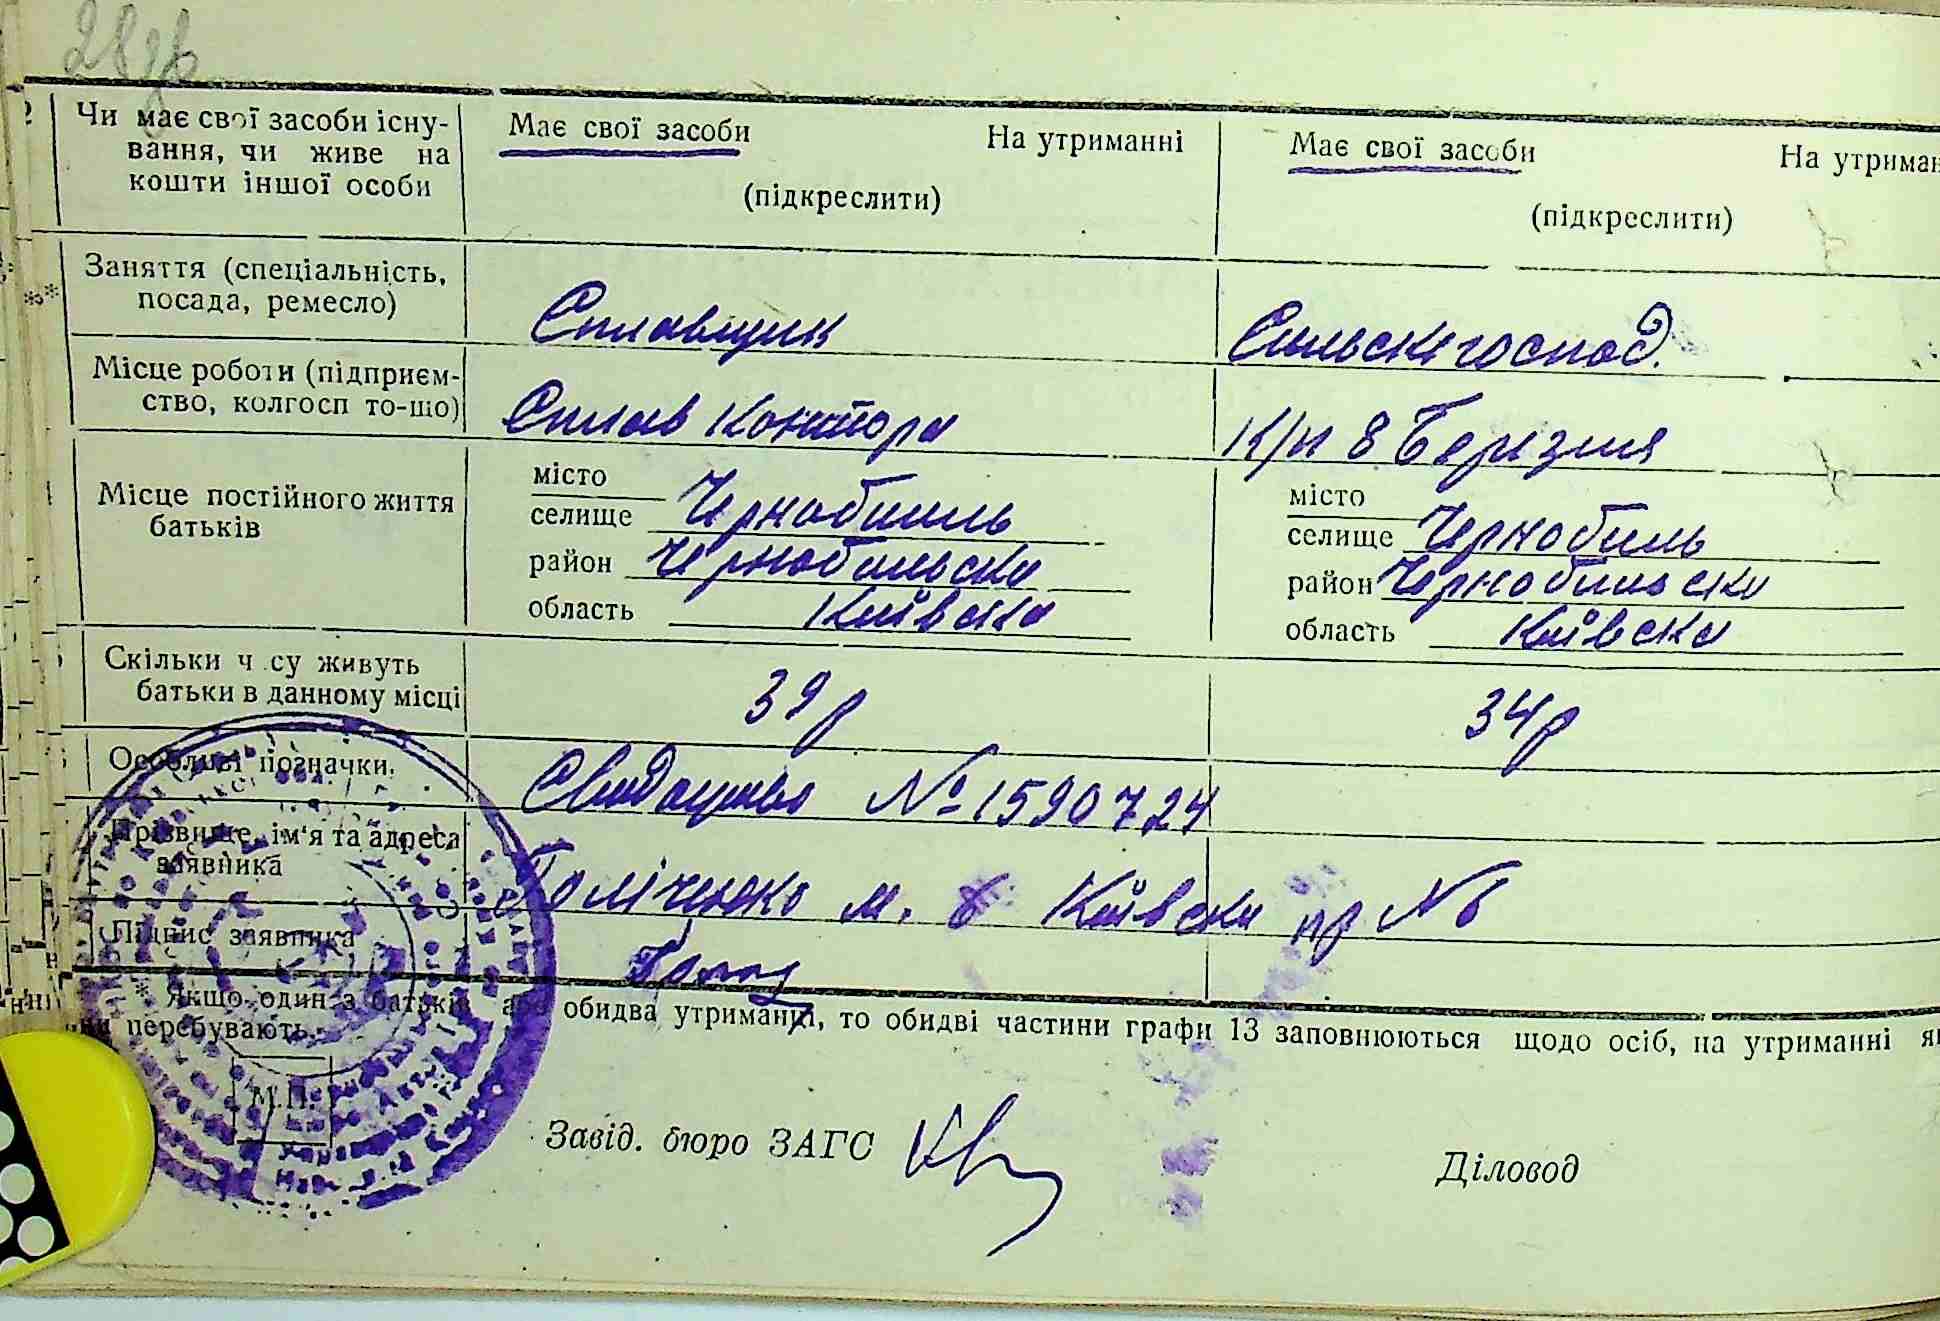 28
Чи має свої засоби існу-
вання, чи живе на
кошти іншої особи
Має свої засоби На утриманні
(підкреслити)
Має свої засоби На утриман
(підкреслити)
Заняття (спеціальність,
посада, ремесло)
Сплавщик
Сільскігоспод.
Місце роботи (підприєм-
ство, колгосп то-що)
Сплав Контора
К/п 8 Березня
Місце постійного життя
батьків
місто
селище Чернобиль
район Чернобильски
область Київска
місто
селище Чернобиль
район Чернобильски
область Київска
Скільки ч су живуть
батьки в данному місці
39 р
34 р
Особливі позначки.
Свидоцтво № 1590724
Прізвище, ім'я та адреса
заявника
м. Київска № 6
Підпис заявника
* Якщо один з батьків або обидва утриманці, то обидві частини графи 13 заповнюються щодо осіб, на утриманні як
перебувають.
М.П.
Завід. бюро ЗАГС
Діловод